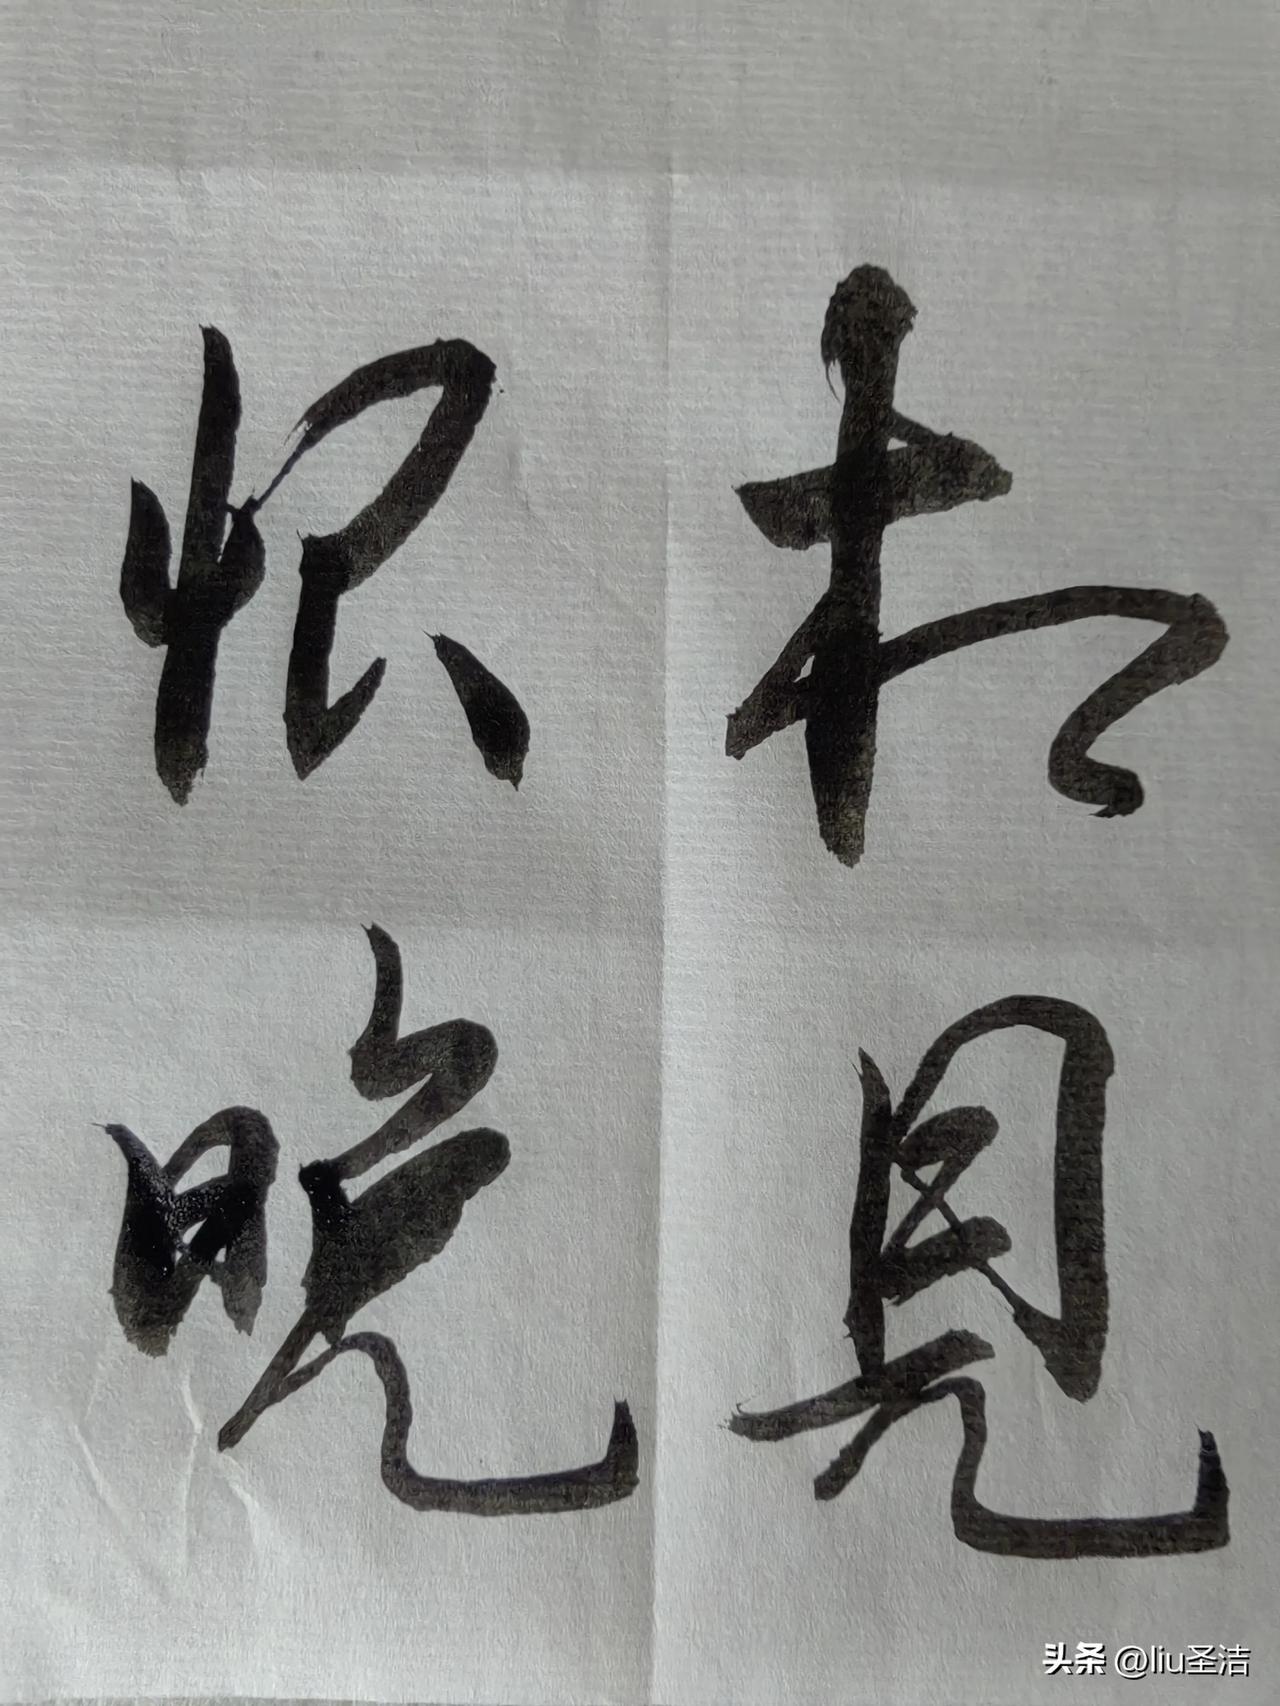 相見
恨晚
头条 @liu圣洁